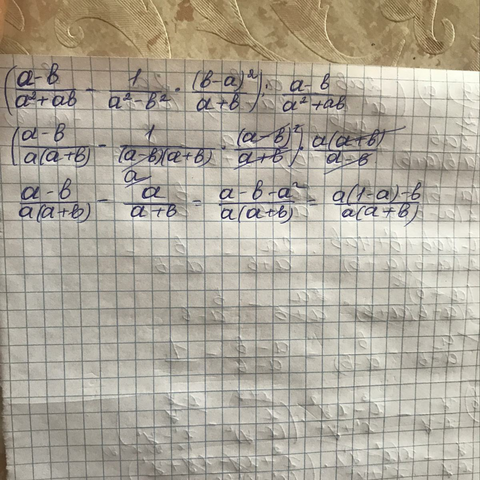 (a-b/a²+ab - 1/a²-b² · (b-a)²/a+b) : a-b/a²+ab
(a-b/a(a+b) - 1/(a-b)(a+b) · (a-b)²/a+b) · a(a+b)/a-b
a-b/a(a+b) - a/a+b = a-b-a²/a(a+b) = a(1-a)-b/a(a+b)